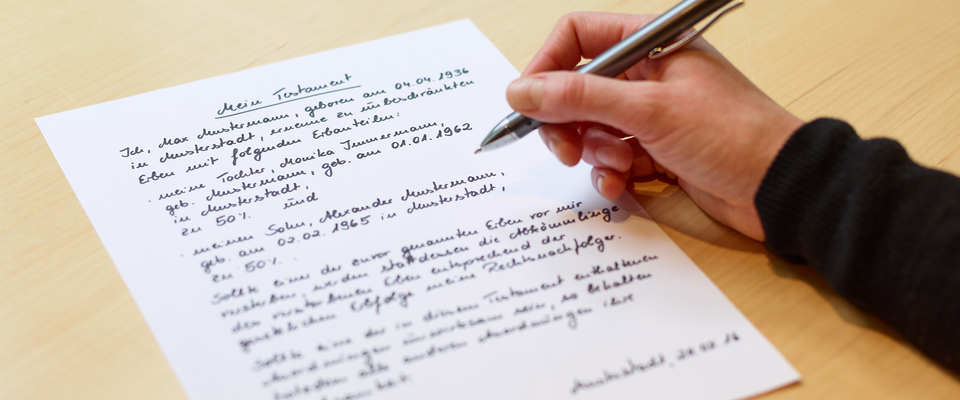 Mein Testament
Ich, Max Mustermann, geboren am 04.04.1936
in Musterstadt, ernenne zu unbeschränkten
Erben mit folgenden Erbanteilen:
· meine Tochter, Monika Immermann,
geb. Mustermann, geb. am 01.01.1962
in Musterstadt,
zu 50% und
· meinen Sohn, Alexander Mustermann,
geb. am 02.02.1965 in Musterstadt,
zu 50%.
Sollte einer der zuvor genannten Erben vor mir
versterben, werden stattdessen die Abkömmlinge
des verstorbenen Erben entsprechend der
gesetzlichen Erbfolge meine Rechtsnachfolger.
Sollte eine der in diesem Testament enthaltenen
Anordnungen unwirksam sein, so behalten
trotzdem alle anderen Anordnungen ihre
Musterstadt,